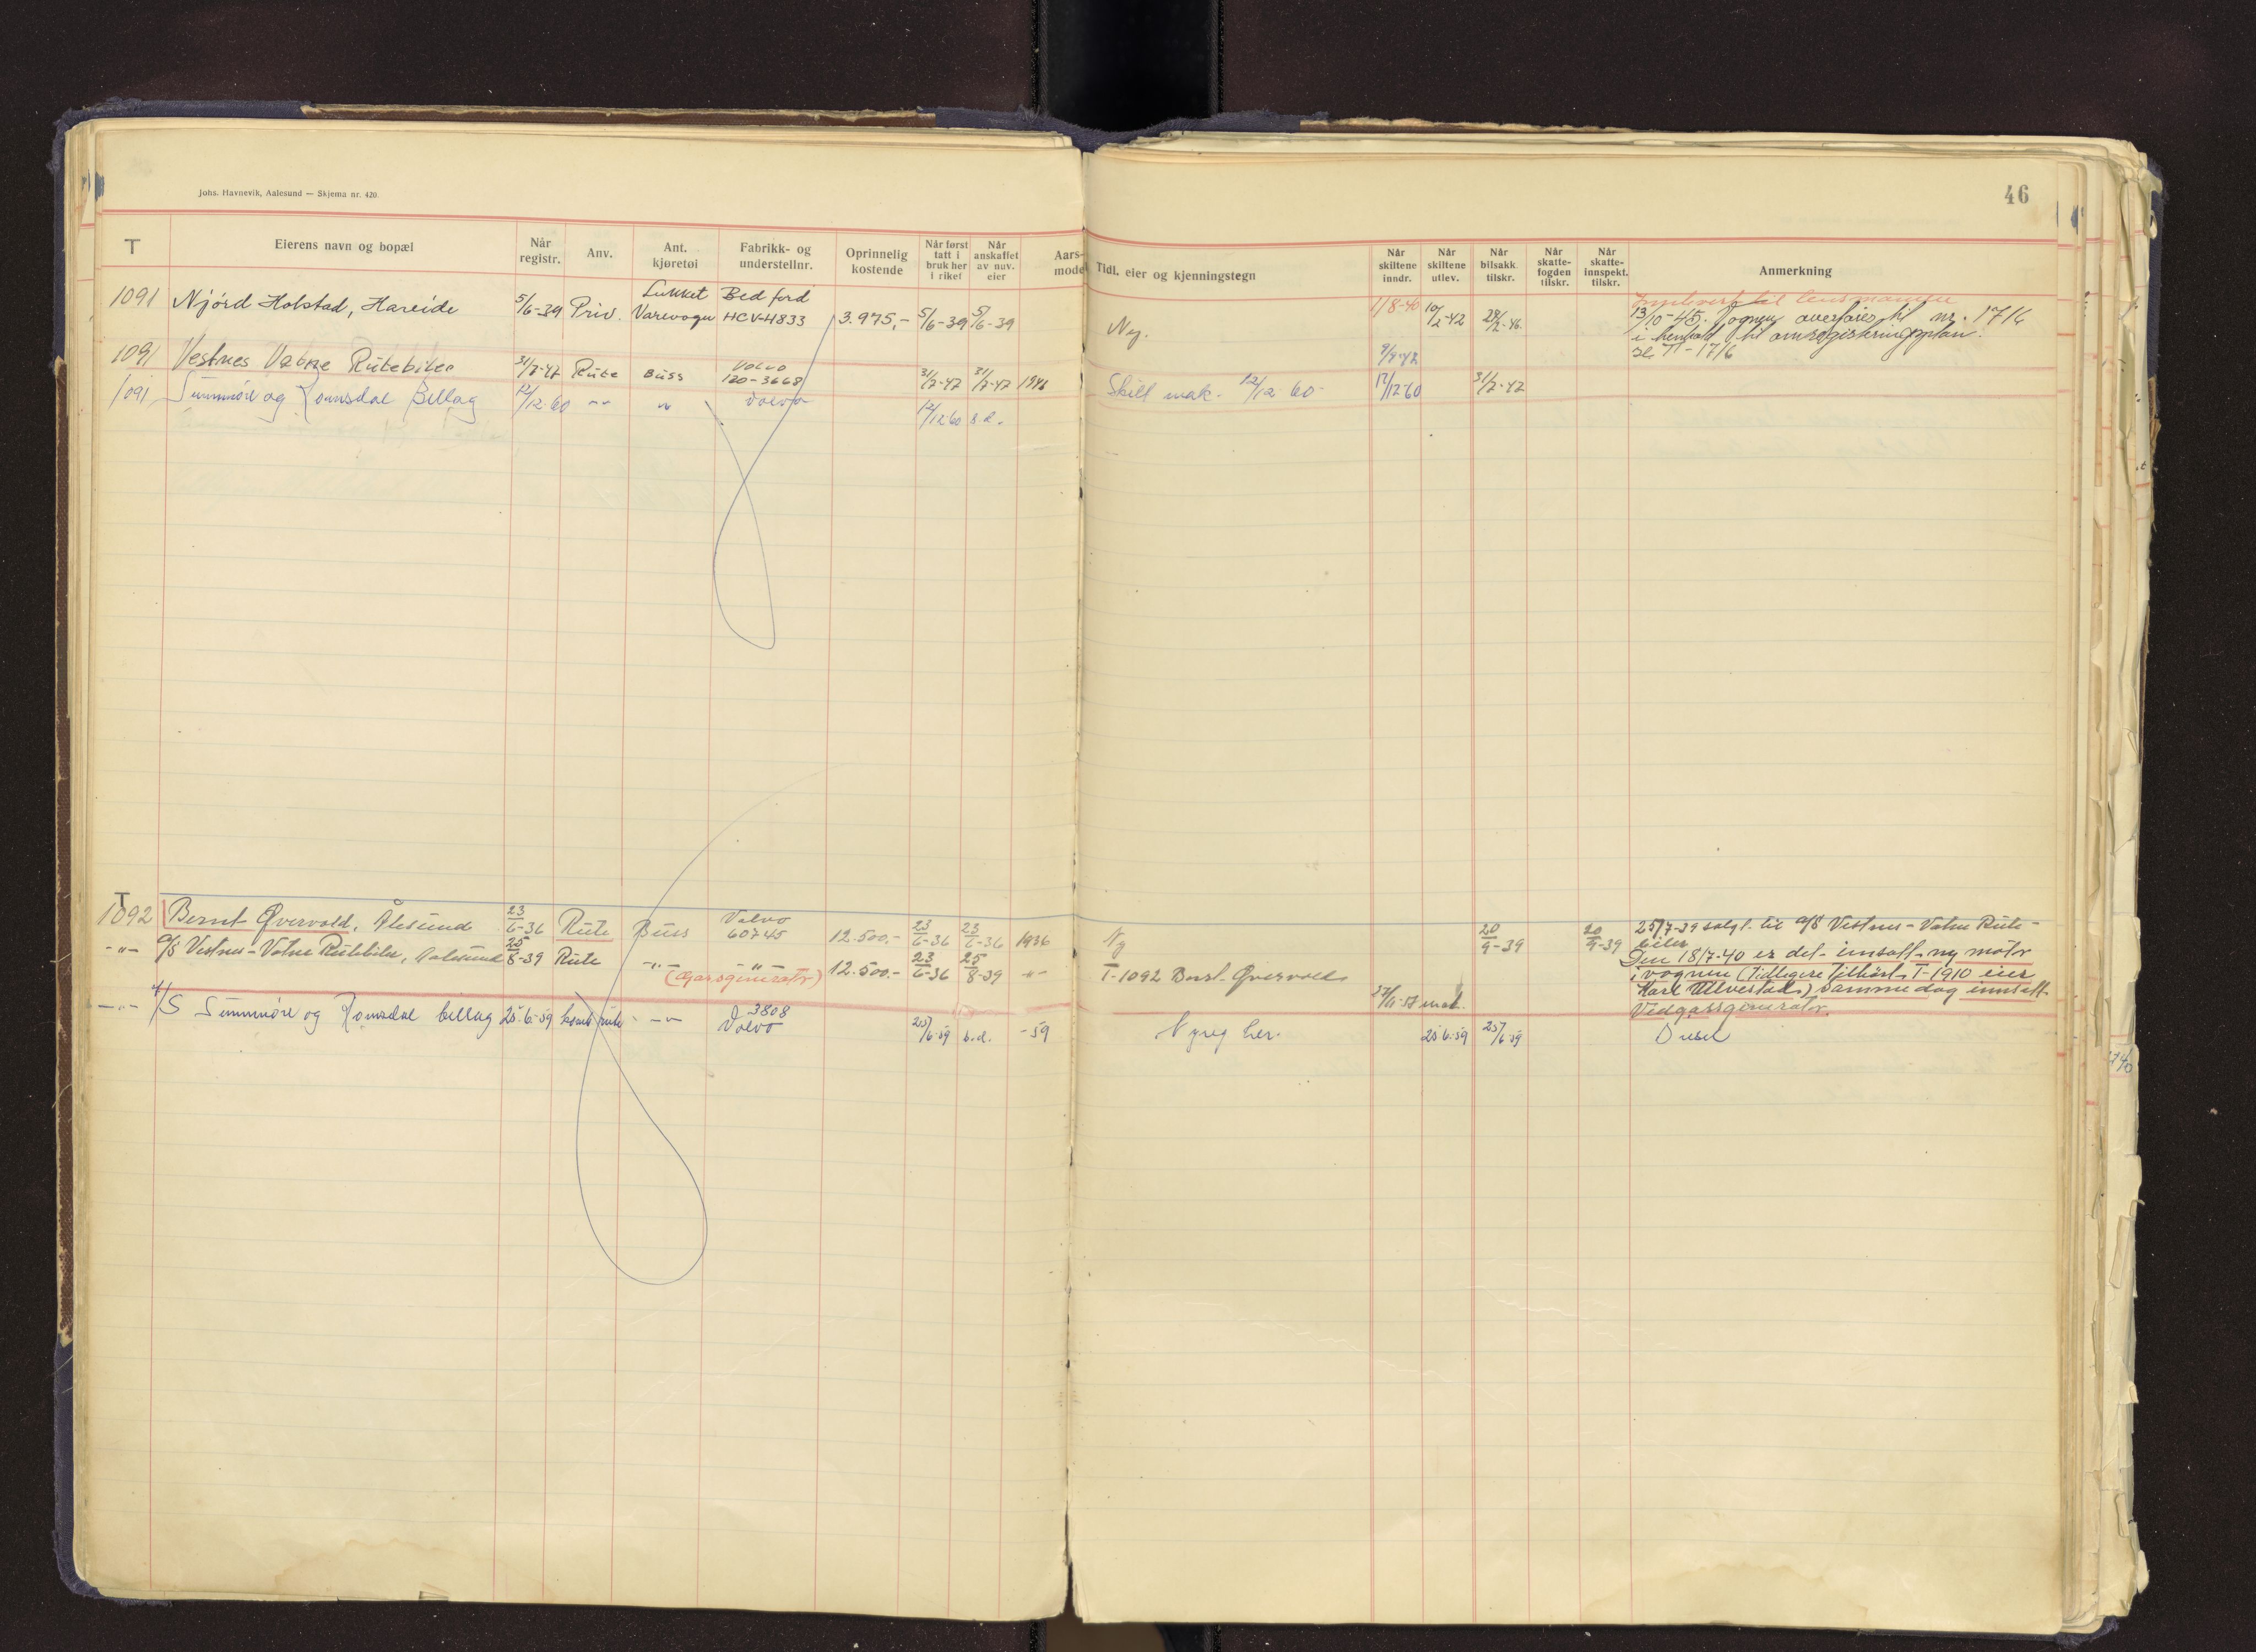 Johs. Havnevik, Aalesund — Skjema nr. 420.
46
T Eierens navn og bopæl Når registr. Anv. Ant. kjøretøi Fabrikk- og understellnr. Oprinnelig kostende Når først tatt i bruk her i riket Når anskaffet av nuv. eier Aars- model
Tidl. eier og kjenningstegn Når skiltene inndr. Når skiltene utlev. Når bilsakk. tilskr. Når skatte- fogden tilskr. Når skatte- innspekt. tilskr. Anmerkning
1091 Njørd Holstad, Hareide 5/6-39 Priv. Lukket Varevogn Bedford HCV-4833 3.975,- 5/6-39 5/6-39
Ny. 1/8-40 10/2-42 28/2-46. til lensmannen
13/10-45. Vognen overføres til nr. 1716
i henhold til omregistreringsplan.
se T-1716
9/9-42
1091 Vestnes Vatne Rutebiler 31/7-47 Rute Buss Volvo 120-3668 31/7-47 31/7-47 1946
Skilt mak. 12/12-60- 12/12-60 31/7-47
1091 Sunnmöre og Romsdal Billag 12/12-60 -"- " Volvo 12/12-60 s.d.
T
1092 Bernt Øvervold, Ålesund 23/6-36 Rute Buss Volvo 60745 12.500.- 23/6-36 23/6-36 1936
Ny 20/9-39 20/9-39 25/7-39 solgt til a/s Vestnes-Vatne Rute-
biler
-"- a/s Vestnes-Vatne Rutebiler, Aalesund 25/8-39 Rute -"- -"- 12.500.- 23/6-36 25/8-39 -"-
(Gassgenerator)
T-1092 Bernt Øvervold
Den 18/7-40 er det innsatt ny motor
i vognen (tidligere tilhørt T-1910 eier
Karl Ulvestad.) samme dag innsatt
Vedgassgenerator.
27/11-57 mak.
-"- A/S Sunnmöre og Romsdal billag 25-6-59 komb rute -"- 3808 Volvo 25/6-59 s.d. -59
Nyreg her. 25-6-59 25/6-59 Diesel